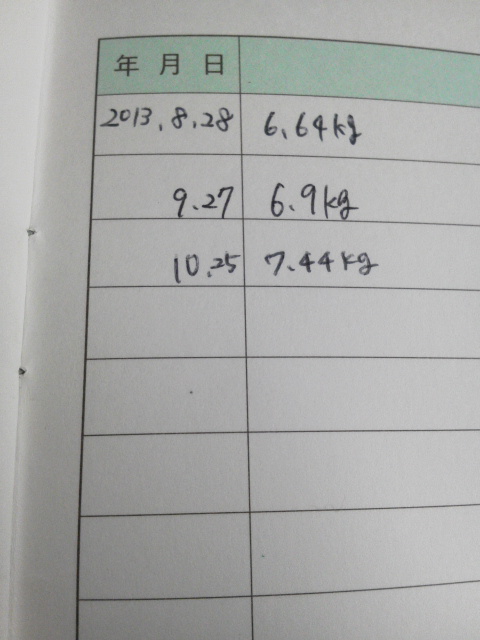 年 月 日
2013.8.28 6.64kg
9.27 6.9kg
10.25 7.44kg